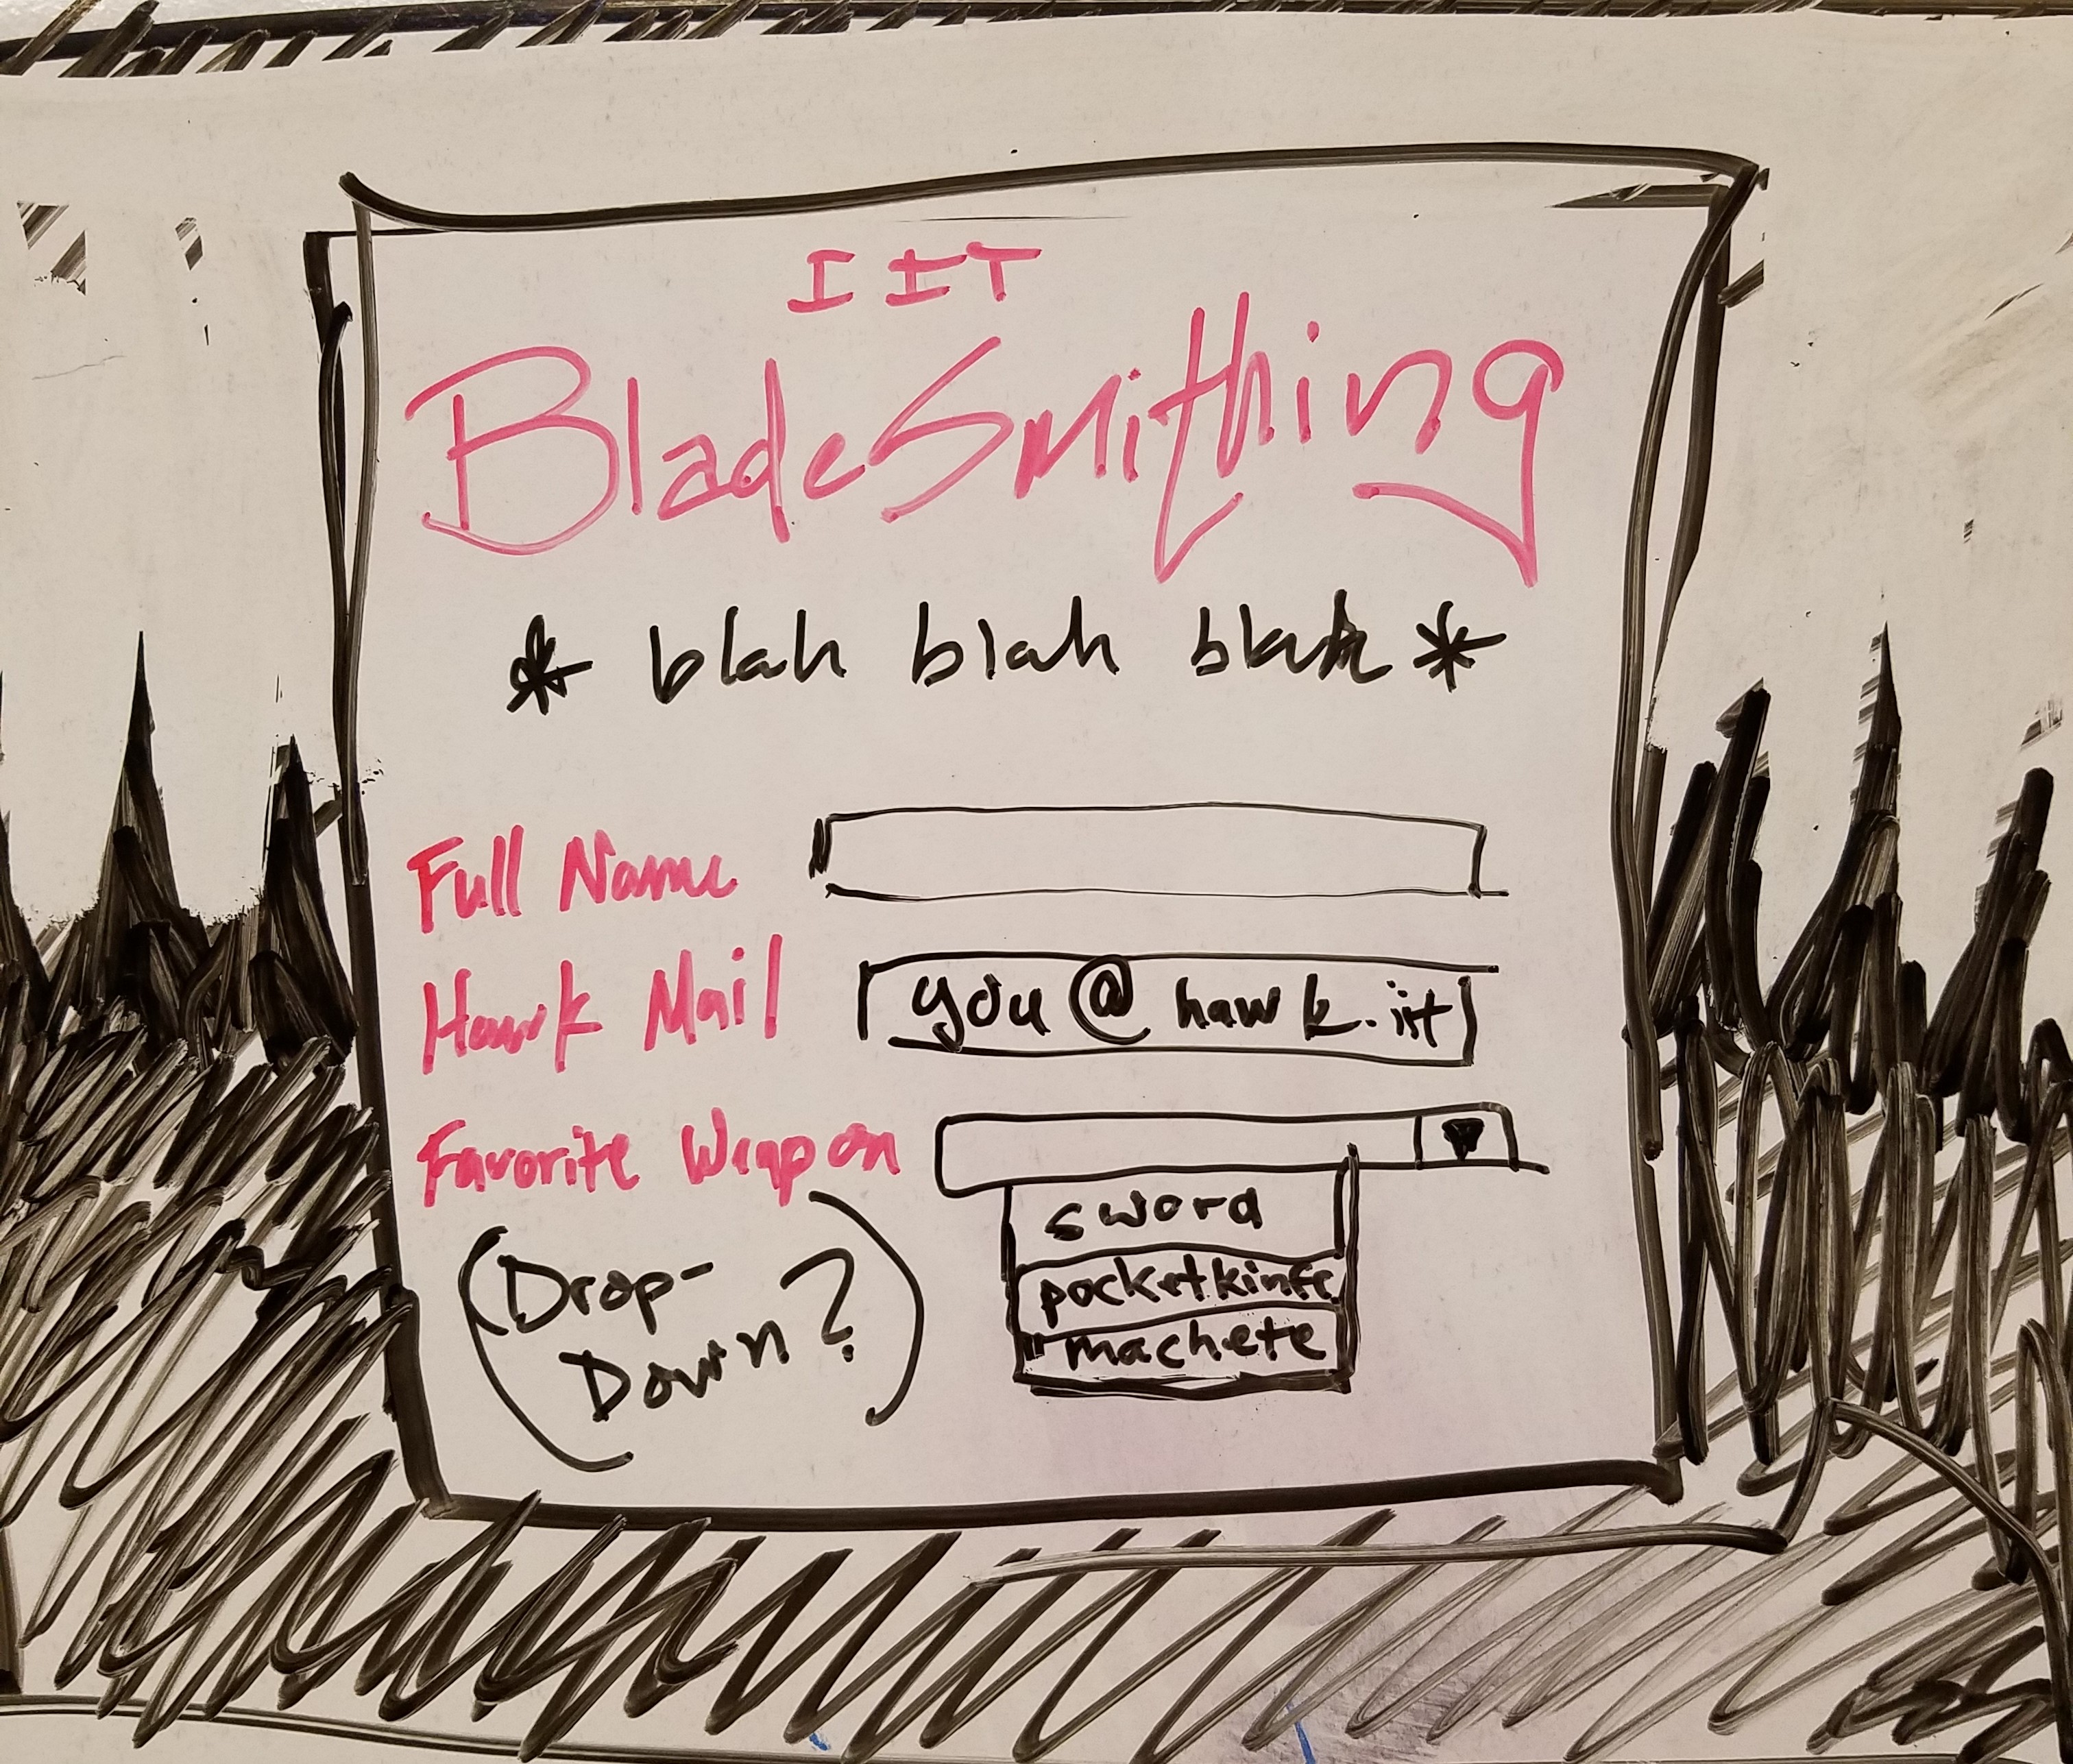 IIT
BladeSmithing
* blah blah blah *
Full Name
Hawk Mail you@hawk.iit
Favorite Weapon
sword
(Drop-
Down?)
pocketkinfe
machete